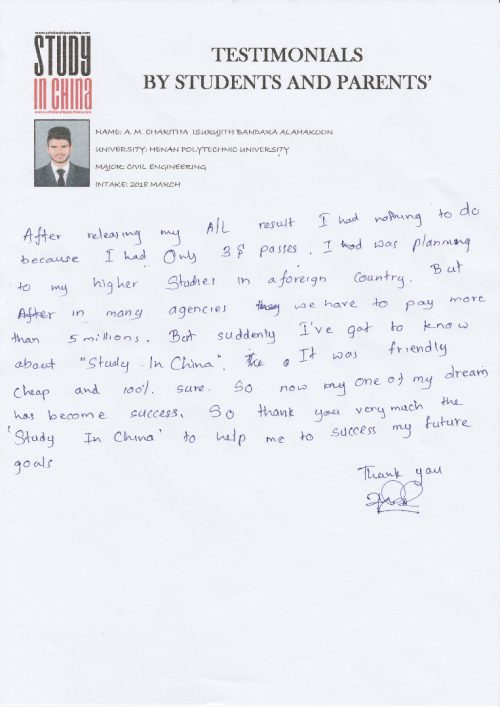 www.scholarshipsinchina.com
STUDY
IN CHINA
www.scholarshipsinchina.com
TESTIMONIALS
BY STUDENTS AND PARENTS’
NAME: A. M. CHARITHA ISURUJITH BANDARA ALAHAKOON
UNIVERSITY: HENAN POLYTECHNIC UNIVERSITY
MAJOR: CIVIL ENGINEERING
INTAKE: 2018 MARCH
After releasing my A/L result I had nothing to do
because I had Only 3 S passes. I had was planning
to my higher Studies in a foreign country. But
After in many agencies they we have to pay more
than 5 millions. But suddenly I've got to know
about "Study In China". the It was friendly
cheap and 100% sure. So now my one of my dream
has become success. So thank you very much the
'Study In China' to help me to success my future
goals
Thank you